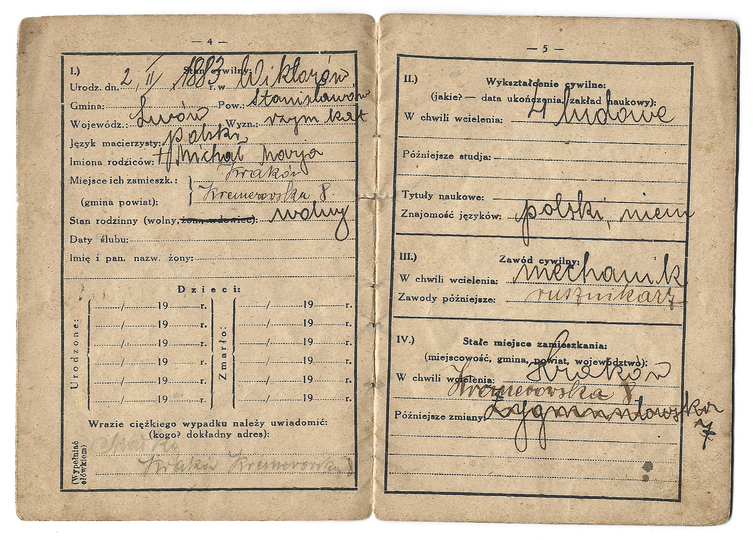 — 4 —
I.) Stan cywilny:
Urodz. dn. 2, II, 1883 r. w Wiktorów
Gmina: Pow.: Stanisławów
Wojewódz.: Lwów Wyzn.: rzym kat
Język macierzysty: polski
Imiona rodziców: Michał Marya
Miejsce ich zamieszk.: Kraków
(gmina powiat): Kremerowska 8
Stan rodzinny (wolny, żon., wdowiec): wolny
Daty ślubu:
Imię i pan. nazw. żony:
Dzieci:
Urodzone:
Zmarło:
/ 19 r. / 19 r.
/ 19 r. / 19 r.
/ 19 r. / 19 r.
/ 19 r. / 19 r.
/ 19 r. / 19 r.
/ 19 r. / 19 r.
Wrazie ciężkiego wypadku należy uwiadomić:
(kogo? dokładny adres):
(Wypełniać ołówkiem)
Kraków Kremerowska
— 5 —
II.) Wykształcenie cywilne:
(jakie? — data ukończenia, zakład naukowy):
W chwili wcielenia: 4 ludowe
Późniejsze studja:
Tytuły naukowe:
Znajomość języków: polski, niem
III.) Zawód cywilny:
W chwili wcielenia: mechanik
Zawody późniejsze: rusznikarz
IV.) Stałe miejsce zamieszkania:
(miejscowość, gmina, powiat, województwo):
W chwili wcielenia: Kraków
Kremerowska 8
Późniejsze zmiany: Zygmuntowska
7